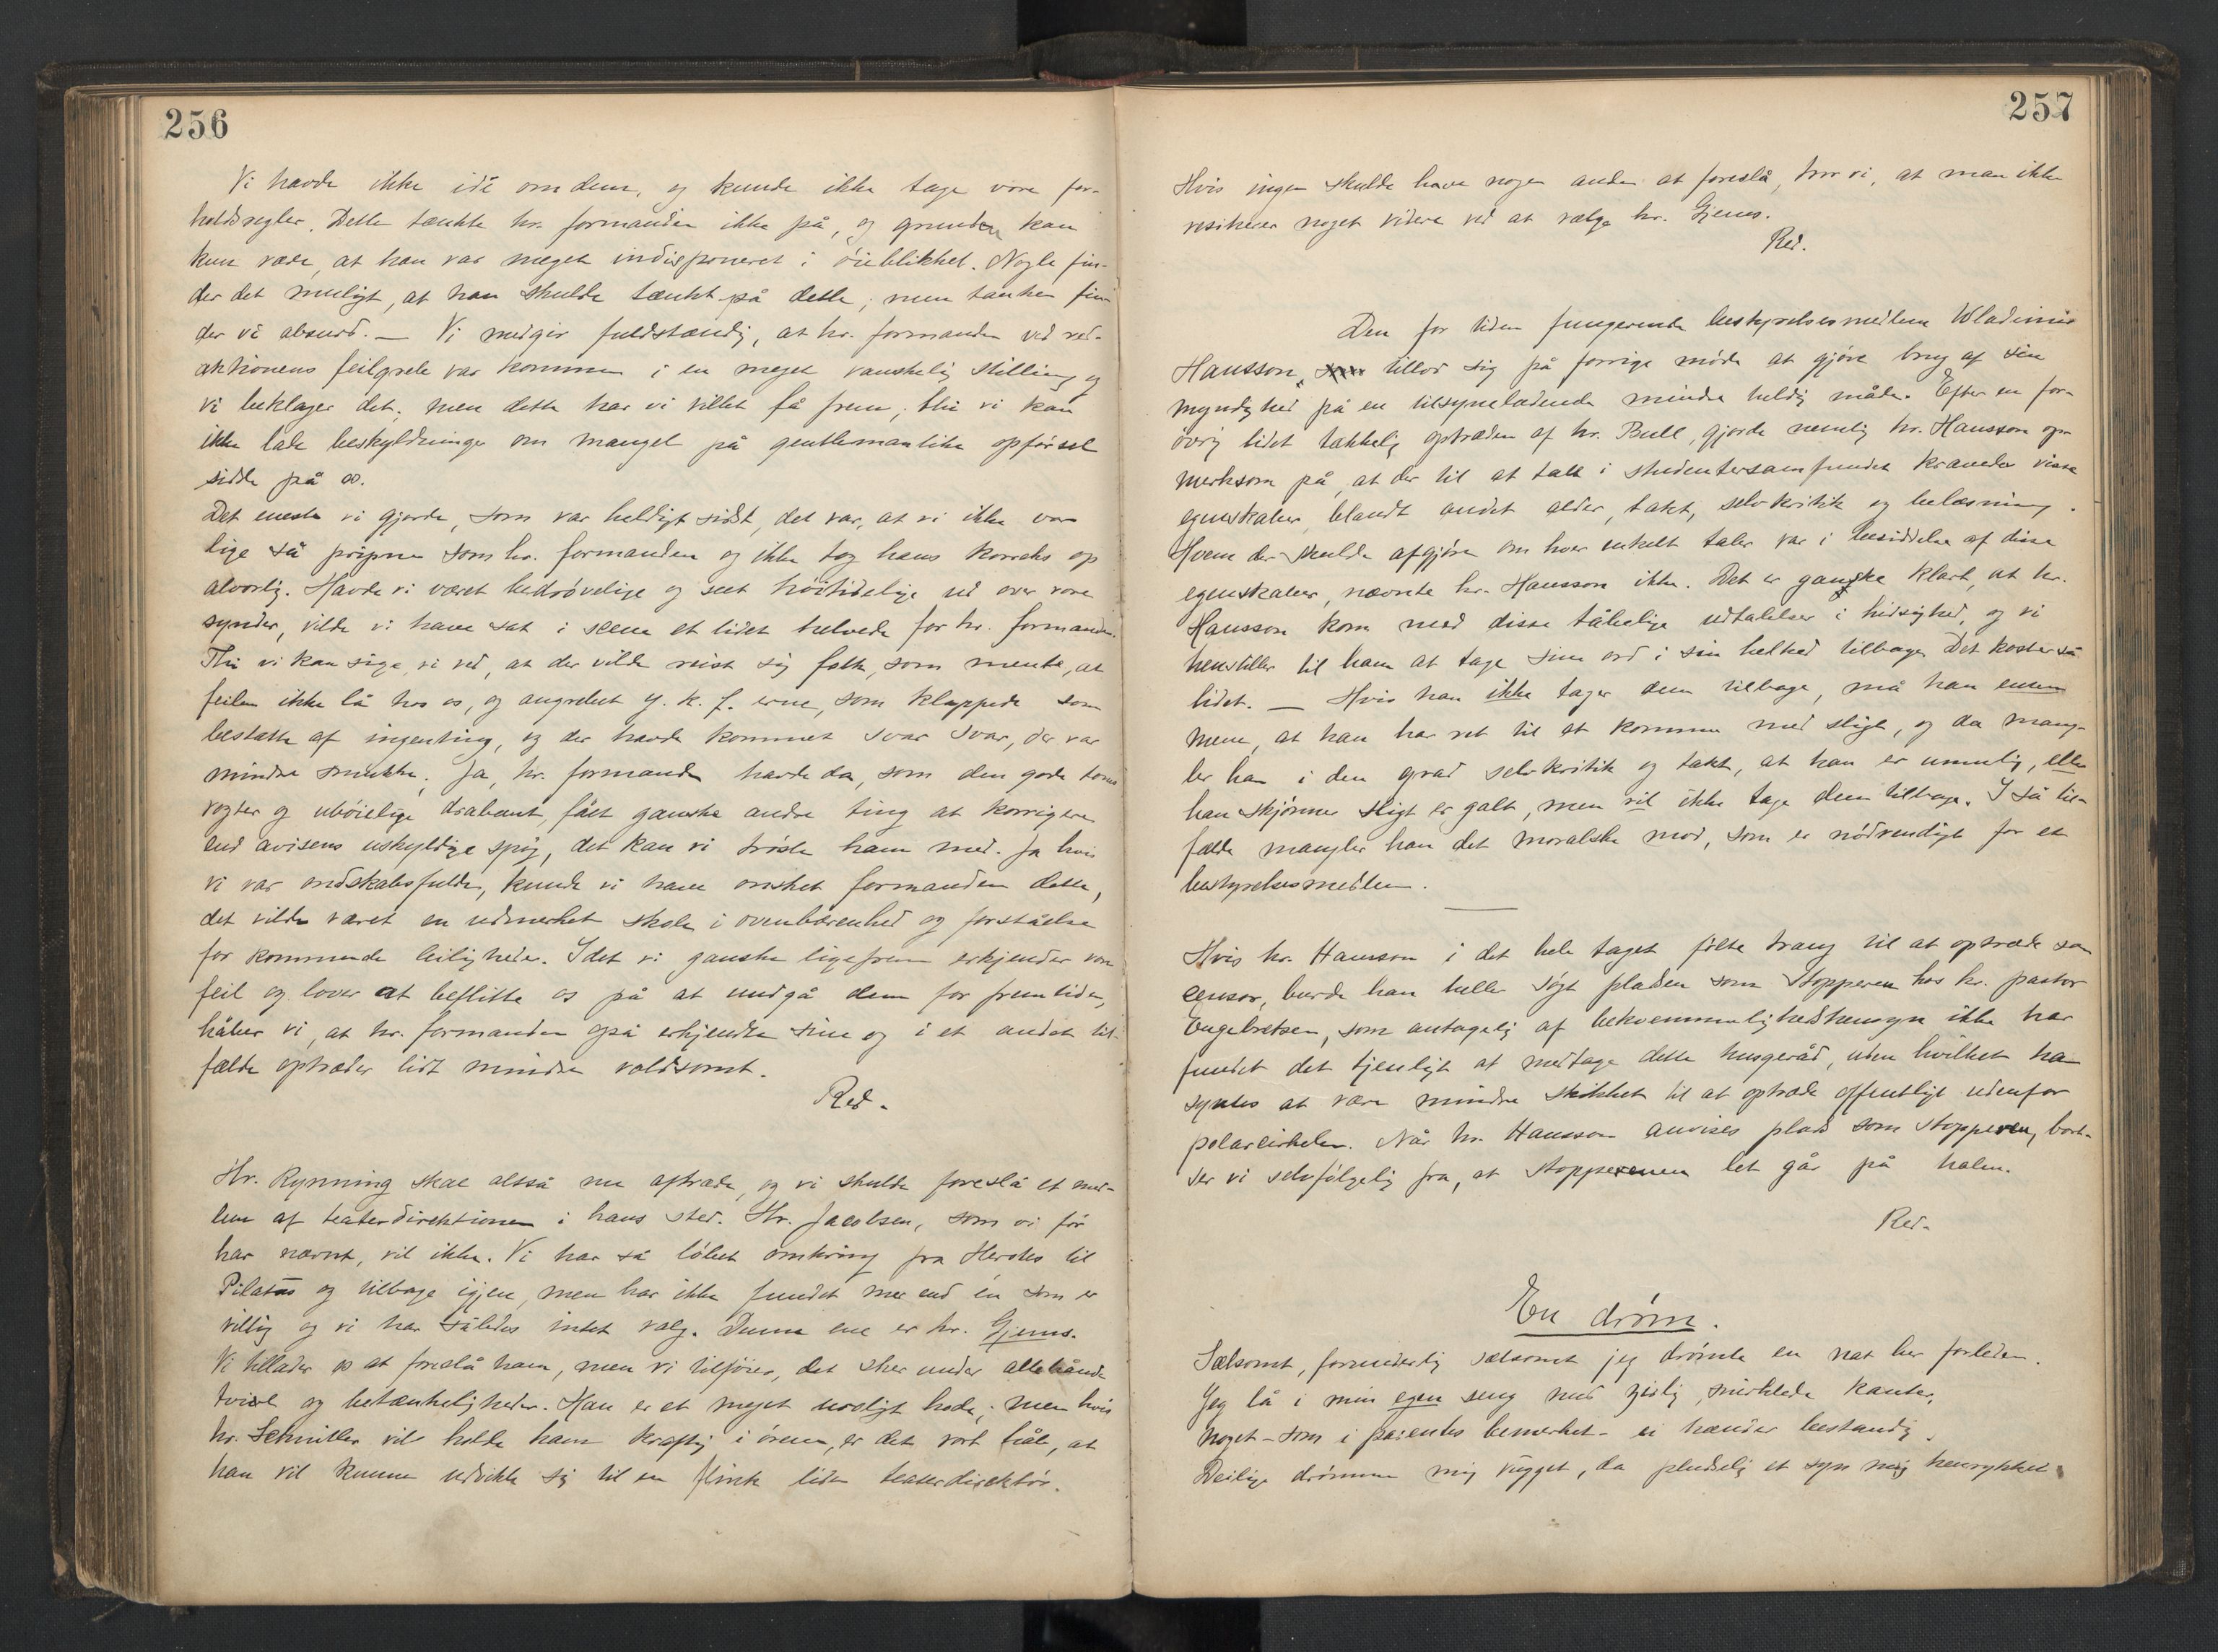 256
Vi havde ikke idé om dem, og kunde ikke tage vore for-
holdsregler. Dette tænkte hr. formanden ikke på, og grunden kan
kun være, at han var meget indisponeret i øieblikket. Nogle fin-
der det muligt, at han skulde tænkt på dette; men tanken fin-
der vi absurd. — Vi medgir fuldstændig, at hr. formanden ved red-
aktionens feilgreb var kommen i en meget vanskelig stilling og
vi beklager det; men dette har vi villet få frem, thi vi kan
ikke lade beskyldninger om mangel på gentlemanlike opførsel
sidde på os.
Det eneste vi gjorde, som var heldigt sidst, det var, at vi ikke var
lige så pripne som hr. formanden og ikke tog hans korreks op
alvorlig. Havde vi været bedrøvelige og seet høitidelige ud over vore
synder, vilde vi have sat i scene et lidet helvede for hr. formanden.
Thi vi kan sige, vi ved, at der vilde reist sig folk, som mente, at
feilen ikke lå hos os, og angrebet y. k. f. erne, som klappede som
besatte af ingenting, og der havde kommet svar svar, der var
mindre smukke. Ja, hr. formanden havde da, som den gode tones
vogter og ubøielige drabant, fået ganske andre ting at korrigere
end avisens uskyldige spøg, det kan vi trøste ham med. Ja hvis
vi var ondskabsfulde, kunde vi have ønsket formanden dette,
det vilde været en udmerket skole i overbærenhed og forståelse
for kommende leiligheder. Idet vi ganske ligefrem erkjender vore
feil og lover at beflitte os på at undgå dem for fremtiden,
håber vi, at hr. formanden også erkjendte sine og i et andet til-
fælde optræder lidt mindre voldsomt.
Red.
Hr. Rynning skal altså nu aftræde, og vi skulde foreslå et med-
lem af teaterdirektionen i hans sted. Hr. Jacobsen, som vi før
har nævnt, vil ikke. Vi har så løbet omkring fra Herodes til
Pilatus og tilbage igjen, men har ikke fundet mer end én som er
villig og vi har således intet valg. Denne ene er hr. Gjems.
Vi tillader os at foreslå ham, men vi tilføier, det sker under allehånde
tvivl og betænkeligheder. Han er et meget uroligt hode; men hvis
hr. Schmiller vil holde ham kraftig i ørene, er det vort håb, at
han vil kunne udvikle sig til en flink liden teaterdirektør.
257
Hvis ingen skulde have nogen anden at foreslå, tror vi, at man ikke
resikerer noget videre ved at vælge hr. Gjems.
Red.
Den for tiden fungerende bestyrelsesmedlem Wladimir
Hansson, tillod sig på forrige møde at gjøre brug af sin
myndighed på en tilsyneladende mindre heldig måde. Efter en for-
øvrig lidet takkelig optræden af hr. Bull, gjorde nemlig hr. Hansson op-
merksom på, at der til at tale i studentersamfundet krævedes visse
egenskaber, blandt andet alder, takt, selvkritik og belæsning.
Hvem der skulde afgjøre om hver enkelt taler var i besiddelse af disse
egenskaber, nævnte hr. Hansson ikke. Det er ganske klart, at hr.
Hansson kom med disse tåbelige udtalelser i hidsighed, og vi
henstiller til ham at tage sine ord i sin helhed tilbage. Det koster så
lidet. — Hvis han ikke tager dem tilbage, må han enten
mene, at han har ret til at komme med sligt, og da mang-
ler han i den grad selvkritik og takt, at han er umulig, eller
han skjønner sligt er galt, men vil ikke tage dem tilbage. I så til-
fælde mangler han det moralske mod, som er nødvendigt for et
bestyrelsesmedlem.
Hvis hr. Hansson i det hele taget følte trang til at optræde som
censor, burde han heller søgt pladsen som Stopperen hos hr. pastor
Engebretsen, som antagelig af bekvemmelighedshensyn ikke har
fundet det tjenligt at medtage dette husgeråd, uden hvilket han
syntes at være mindre skikket til at optræde offentligt udenfor
polarcirkelen. Når hr. Hansson anvises plads som Stopperen, bort-
ser vi selvfølgelig fra, at stopperenen let går på halen.
Red.
En drøm.
Sælsomt, forunderlig sælsomt jeg drømte en nat her forleden.
Jeg lå i min egen seng med zirlig, snirklede kanter,
Noget – som i parentes bemerket – ei hænder bestandig.
Deilige drømme mig vugget, da pludselig et syn mig henrykket